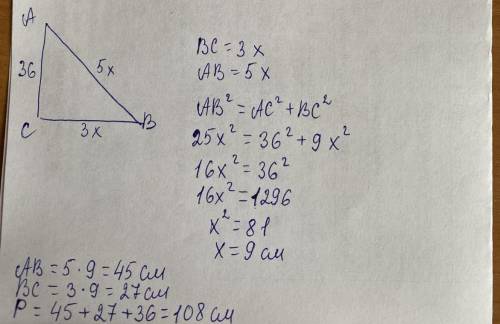 A
36
5x
C
3x
B
BC = 3x
AB = 5x
AB² = AC² + BC²
25x² = 36² + 9x²
16x² = 36²
16x² = 1296
x² = 81
x = 9 см
AB = 5 · 9 = 45 см
BC = 3 · 9 = 27 см
P = 45 + 27 + 36 = 108 см